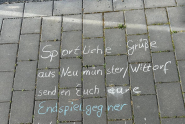 Sportliche Grüße
aus Neumünster/Wittorf
senden Euch eure
Endspielgegner